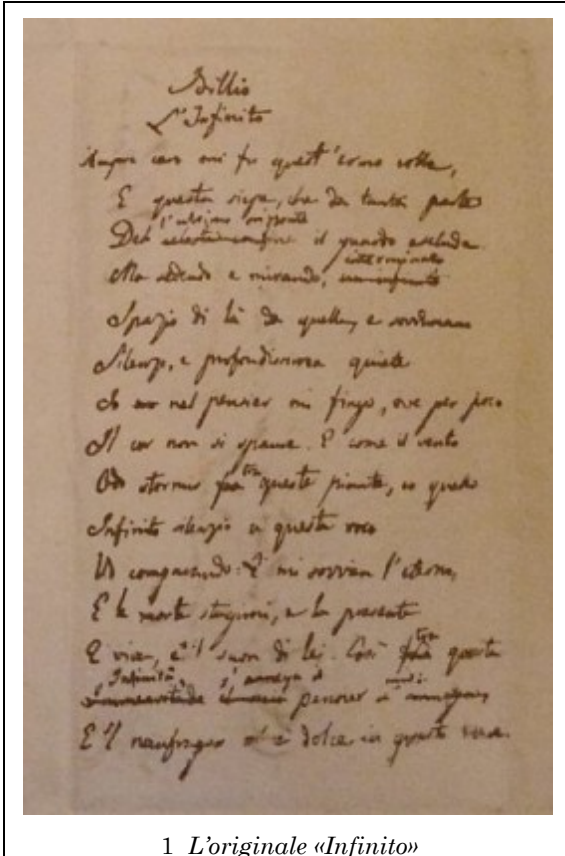 Idillio
L'Infinito
Sempre caro mi fu quest'ermo colle,
E questa siepe, che da tanta parte
l'ultimo orizzonte
Del celeste confine il guardo esclude.
interminato
Ma sedendo e mirando, un infinito
Spazio di là da quello, e sovrumani
Silenzi, e profondissima quiete
Io nel pensier mi fingo, ove per poco
Il cor non si spaura. E come il vento
tra
Odo stormir fra queste piante, io quello
Infinito silenzio a questa voce
Vo comparando: E mi sovvien l'eterno,
E le morte stagioni, e la presente
tra
E viva, e 'l suon di lei. Così fra questa
Infinità, s'annega il
pensier
E 'l naufragar m'è dolce in questo mare.
1 L'originale «Infinito»